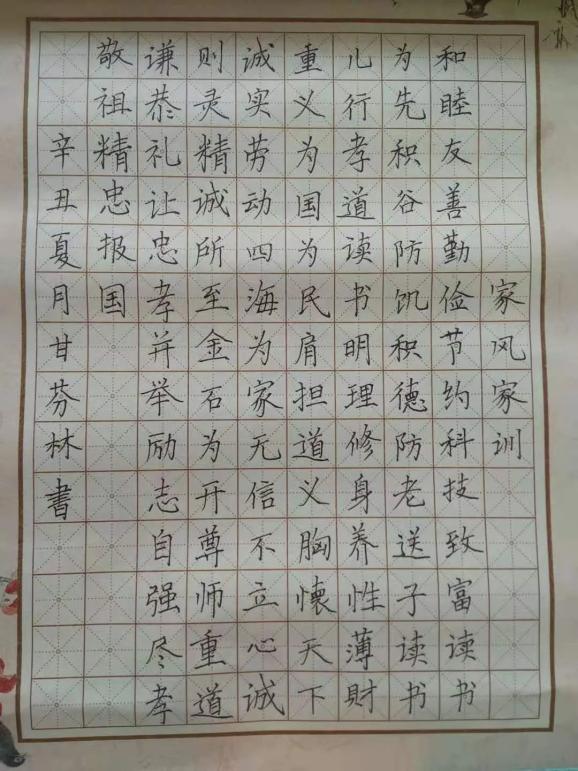 家风家训
和睦友善勤俭节约科技致富读书
为先积谷防饥积德防老送子读书
儿行孝道读书明理修身养性薄财
重义为国为民肩担道义胸怀天下
诚实劳动四海为家无信不立心诚
则灵精诚所至金石为开尊师重道
谦恭礼让忠孝并举励志自强尽孝
敬祖精忠报国
辛丑夏月甘芬林書